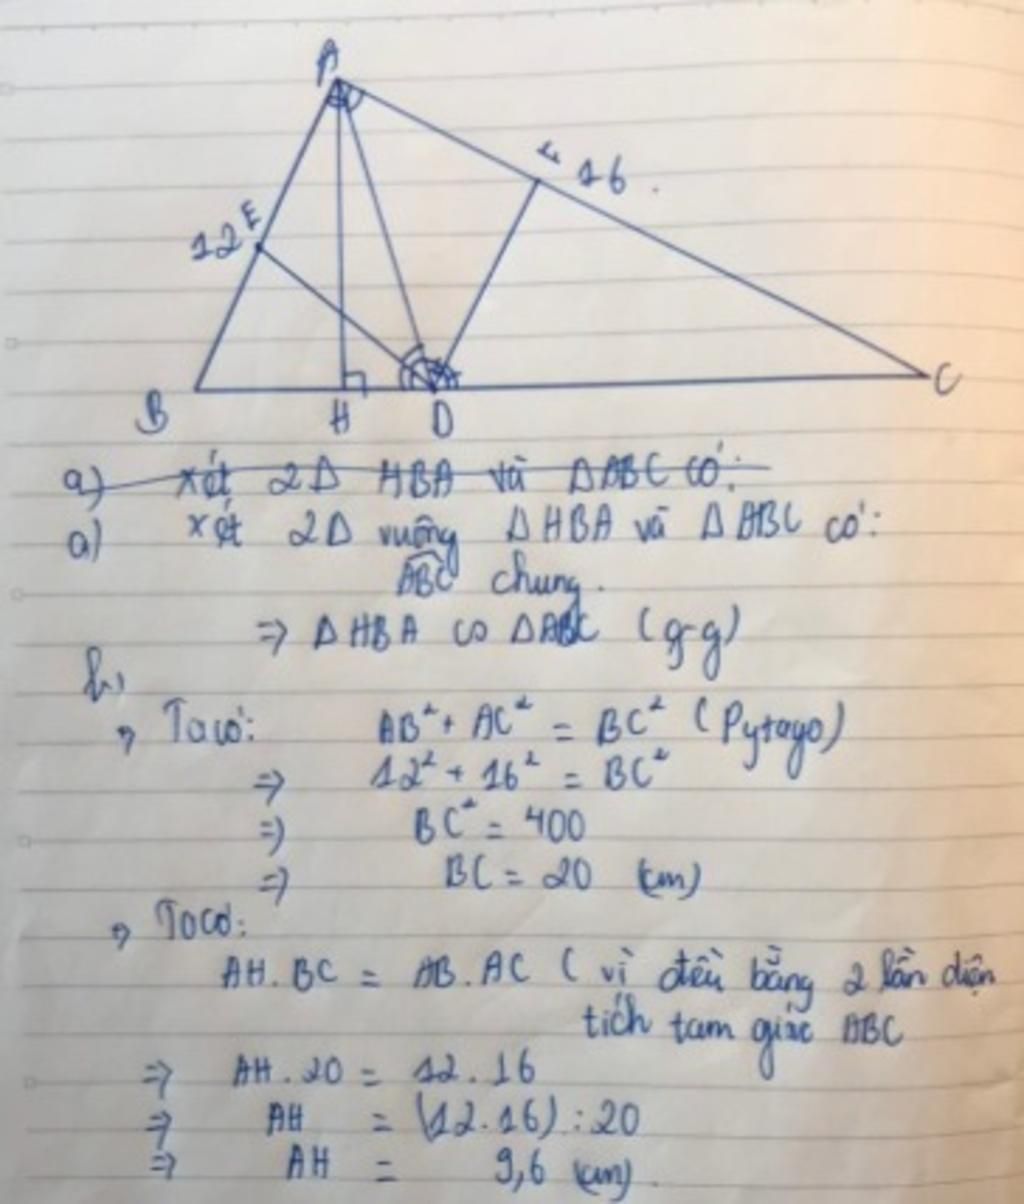 A
E
12
F 16.
B
H
D
C
a) xét 2Δ HBA và ΔABC có:
a) xét 2Δ vuông ΔHBA và ΔABC có:
ABC chung.
=> ΔHBA ∽ ΔABC (g-g)
b,
Ta có: AB² + AC² = BC² (Pytago)
=> 12² + 16² = BC²
=> BC² = 400
=> BC = 20 (cm)
Ta có:
AH.BC = AB.AC ( vì đều bằng 2 lần diện
tích tam giác ABC
=> AH.20 = 12.16
=> AH = (12.16):20
=> AH = 9,6 (cm).